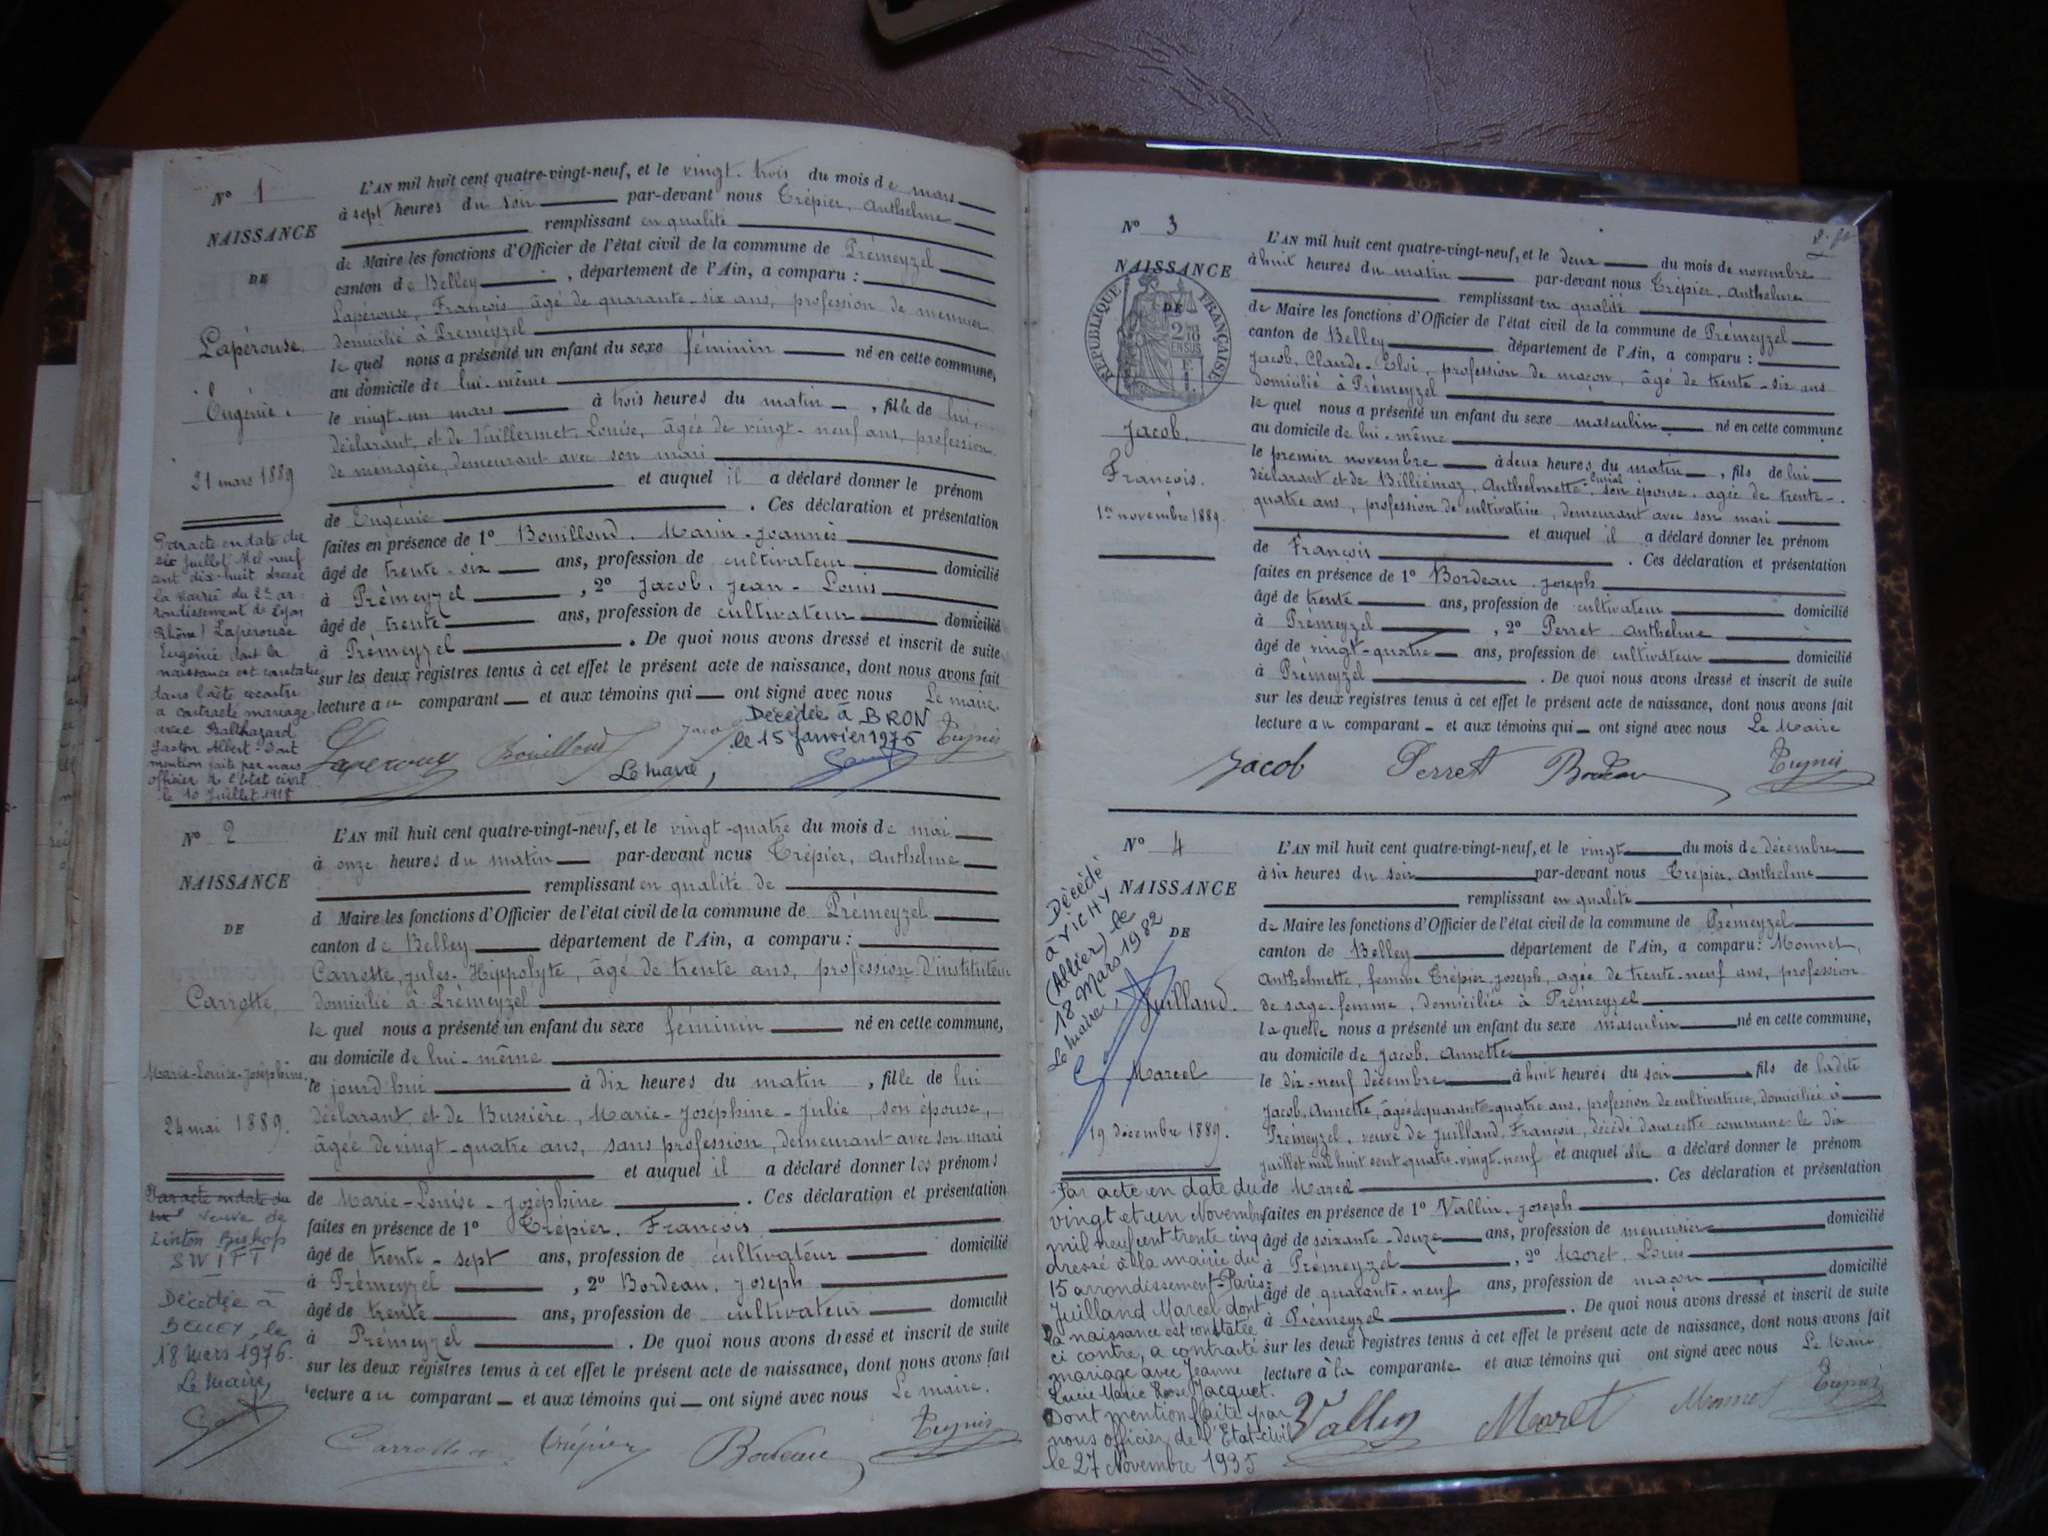 N° 1
NAISSANCE
DE
Lapérouse.
Eugénie.
21 mars 1889
Par acte en date du
six Juillet Mil neuf
cent dix-huit dressé
la mairie du 2e ar-
rondissement de Lyon
Rhône) Lapérouse
Eugénie dont la
naissance est constatée
dans l'acte ci-contre
a contracté mariage
avec Balthazard
Gaston Albert. Dont
mention faite par nous
officier de l'état civil
le 10 Juillet 1918
L'AN mil huit cent quatre-vingt-neuf, et le vingt-trois du mois de mars
à sept heures du soir par-devant nous Trépier, Anthelme
remplissant en qualité
de Maire les fonctions d'Officier de l'état civil de la commune de Prémeyzel
canton de Belley , département de l'Ain, a comparu :
Lapérouse, François, âgé de quarante-six ans, profession de meunier
domicilié à Prémeyzel
le quel nous a présenté un enfant du sexe féminin né en cette commune,
au domicile de lui-même
le vingt-un mars à trois heures du matin , fille de lui,
déclarant, et de Vuillermet, Louise, âgée de vingt-neuf ans, profession
de ménagère, demeurant avec son mari
et auquel il a déclaré donner le prénom
de Eugénie . Ces déclaration et présentation
faites en présence de 1° Bouilloud, Marin-Joannès
âgé de trente-six ans, profession de cultivateur domicilié
à Prémeyzel , 2° Jacob, Jean-Louis
âgé de trente ans, profession de cultivateur domicilié
à Prémeyzel . De quoi nous avons dressé et inscrit de suite
sur les deux registres tenus à cet effet le présent acte de naissance, dont nous avons fait
lecture au comparant et aux témoins qui ont signé avec nous Le maire
Décédée à BRON
le 15 Janvier 1976
Lapérouse Bouilloud Jacob
Le Maire,
N° 2
NAISSANCE
DE
Carrotte,
Marie-Louise-Joséphine.
24 mai 1889.
Par acte en date du
veuve de
Linton Bishop
SWIFT
Décédée à
BELLEY, le
18 Mars 1976.
Le Maire,
L'AN mil huit cent quatre-vingt-neuf, et le vingt-quatre du mois de mai
à onze heures du matin par-devant nous Trépier, Anthelme
remplissant en qualité de
d Maire les fonctions d'Officier de l'état civil de la commune de Prémeyzel
canton de Belley département de l'Ain, a comparu :
Carrotte, Jules-Hippolyte, âgé de trente ans, profession d'instituteur
domicilié à Prémeyzel
le quel nous a présenté un enfant du sexe féminin né en cette commune,
au domicile de lui-même
le jourd'hui à dix heures du matin , fille de lui
déclarant, et de Bussière, Marie-Joséphine-Julie, son épouse,
âgée de vingt-quatre ans, sans profession, demeurant avec son mari
et auquel il a déclaré donner les prénoms
de Marie-Louise-Joséphine . Ces déclaration et présentation
faites en présence de 1° Trépier, François
âgé de trente-sept ans, profession de cultivateur domicilié
à Prémeyzel , 2° Bordeau, Joseph
âgé de trente ans, profession de cultivateur domicilié
à Prémeyzel . De quoi nous avons dressé et inscrit de suite
sur les deux registres tenus à cet effet le présent acte de naissance, dont nous avons fait
lecture au comparant et aux témoins qui ont signé avec nous Le maire.
Carrotte Trépier Bordeau
N° 3
NAISSANCE
DE
RÉPUBLIQUE FRANÇAISE
Jacob.
François.
1er novembre 1889.
L'AN mil huit cent quatre-vingt-neuf, et le deux du mois de novembre
à huit heures du matin par-devant nous Trépier, Anthelme
remplissant en qualité
de Maire les fonctions d'Officier de l'état civil de la commune de Prémeyzel
canton de Belley département de l'Ain, a comparu :
Jacob, Claude-Eloi, profession de maçon, âgé de trente-six ans
domicilié à Prémeyzel
le quel nous a présenté un enfant du sexe masculin né en cette commune
au domicile de lui-même
le premier novembre à deux heures du matin , fils de lui
déclarant et de Billiémaz, Anthelmette, son épouse, âgée de trente-
quatre ans, profession de cultivatrice, demeurant avec son mari
et auquel il a déclaré donner les prénom
de François . Ces déclaration et présentation
faites en présence de 1° Bordeau, Joseph
âgé de trente ans, profession de cultivateur domicilié
à Prémeyzel , 2° Perret Anthelme
âgé de vingt-quatre ans, profession de cultivateur domicilié
à Prémeyzel . De quoi nous avons dressé et inscrit de suite
sur les deux registres tenus à cet effet le présent acte de naissance, dont nous avons fait
lecture au comparant et aux témoins qui ont signé avec nous Le Maire
Jacob Perret Bordeau
N° 4
NAISSANCE
DE
Décédé
à VICHY
(Allier) le
18 Mars 1982
Le Maire,
Juilland.
Marcel
19 décembre 1889.
Par acte en date du
vingt et un Novembre
mil neuf cent trente cinq
dressé à la mairie du
15 arrondissement-Paris-
Juilland Marcel dont
la naissance est constatée
ci contre, a contracté
mariage avec Jeanne
Lucie Marie Rose Jacquet.
Dont mention faite par
nous officier de l'Etat-civil
le 27 Novembre 1935
L'AN mil huit cent quatre-vingt-neuf, et le vingt du mois de décembre
à six heures du soir par-devant nous Trépier, Anthelme
remplissant en qualité
de Maire les fonctions d'Officier de l'état civil de la commune de Prémeyzel
canton de Belley département de l'Ain, a comparu : Monnet,
Anthelmette, femme Trépier, Joseph, âgée de trente-neuf ans, profession
de sage-femme, domiciliée à Prémeyzel
la quelle nous a présenté un enfant du sexe masculin né en cette commune,
au domicile de Jacob, Annette
le dix-neuf décembre à huit heures du soir , fils de ladite
Jacob, Annette, âgée de quarante-quatre ans, profession de cultivatrice, domiciliée à
Prémeyzel, veuve de Juilland, François, décédé dans cette commune le dix
juillet mil huit cent quatre-vingt-neuf et auquel elle a déclaré donner le prénom
de Marcel . Ces déclaration et présentation
faites en présence de 1° Vallin, Joseph
âgé de soixante-douze ans, profession de menuisier domicilié
à Prémeyzel , 2° Moret, Louis
âgé de quarante-neuf ans, profession de maçon domicilié
à Prémeyzel . De quoi nous avons dressé et inscrit de suite
sur les deux registres tenus à cet effet le présent acte de naissance, dont nous avons fait
lecture à la comparante et aux témoins qui ont signé avec nous Le Maire
Vallin Moret Monnet